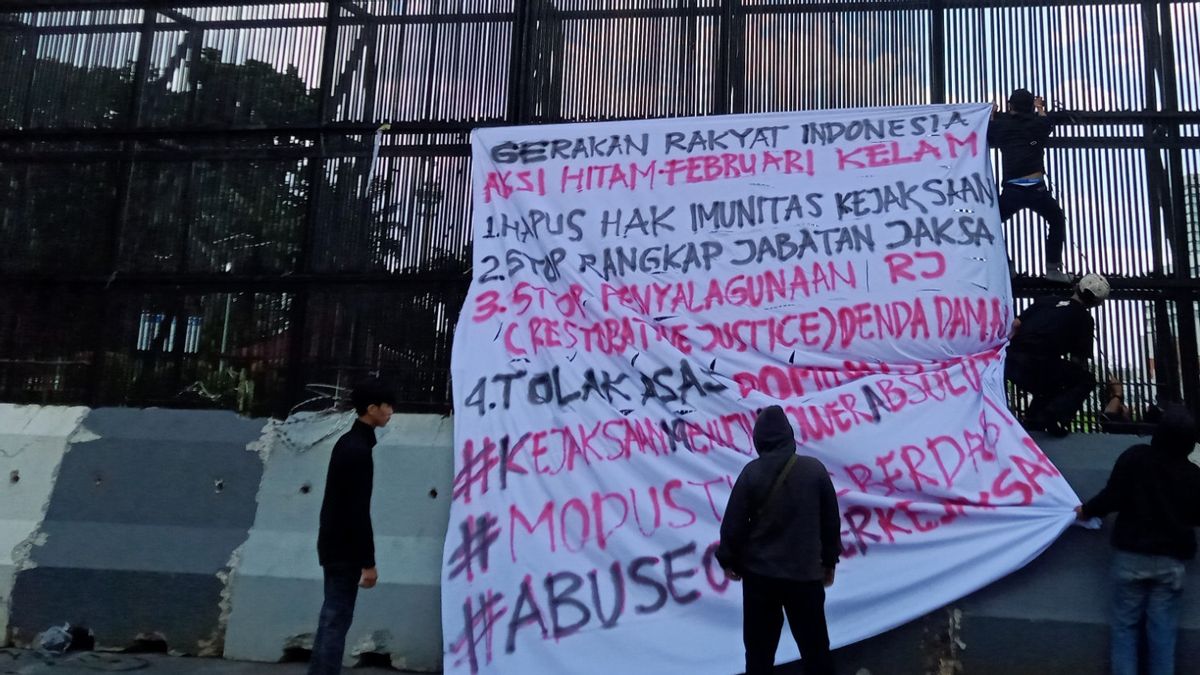 GERAKAN RAKYAT INDONESIA
AKSI HITAM-FEBRUARI KELAM
1. HAPUS HAK IMUNITAS KEJAKSAAN
2. STOP RANGKAP JABATAN JAKSA
3. STOP PENYALAGUNAAN RJ
(RESTORATIVE JUSTICE) DENDA DAMAI
4. TOLAK ASAS
#KEJAKSAAN POWER ABSOLUT
#MODUS
#ABUSE